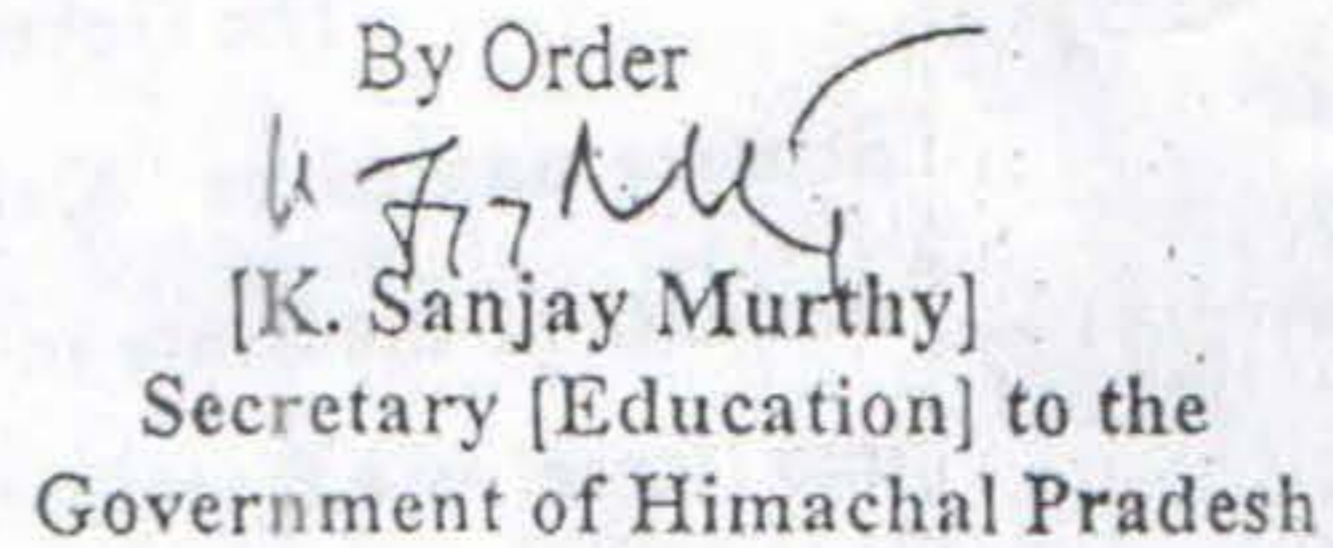 By Order
[K. Sanjay Murthy]
Secretary [Education] to the
Government of Himachal Pradesh